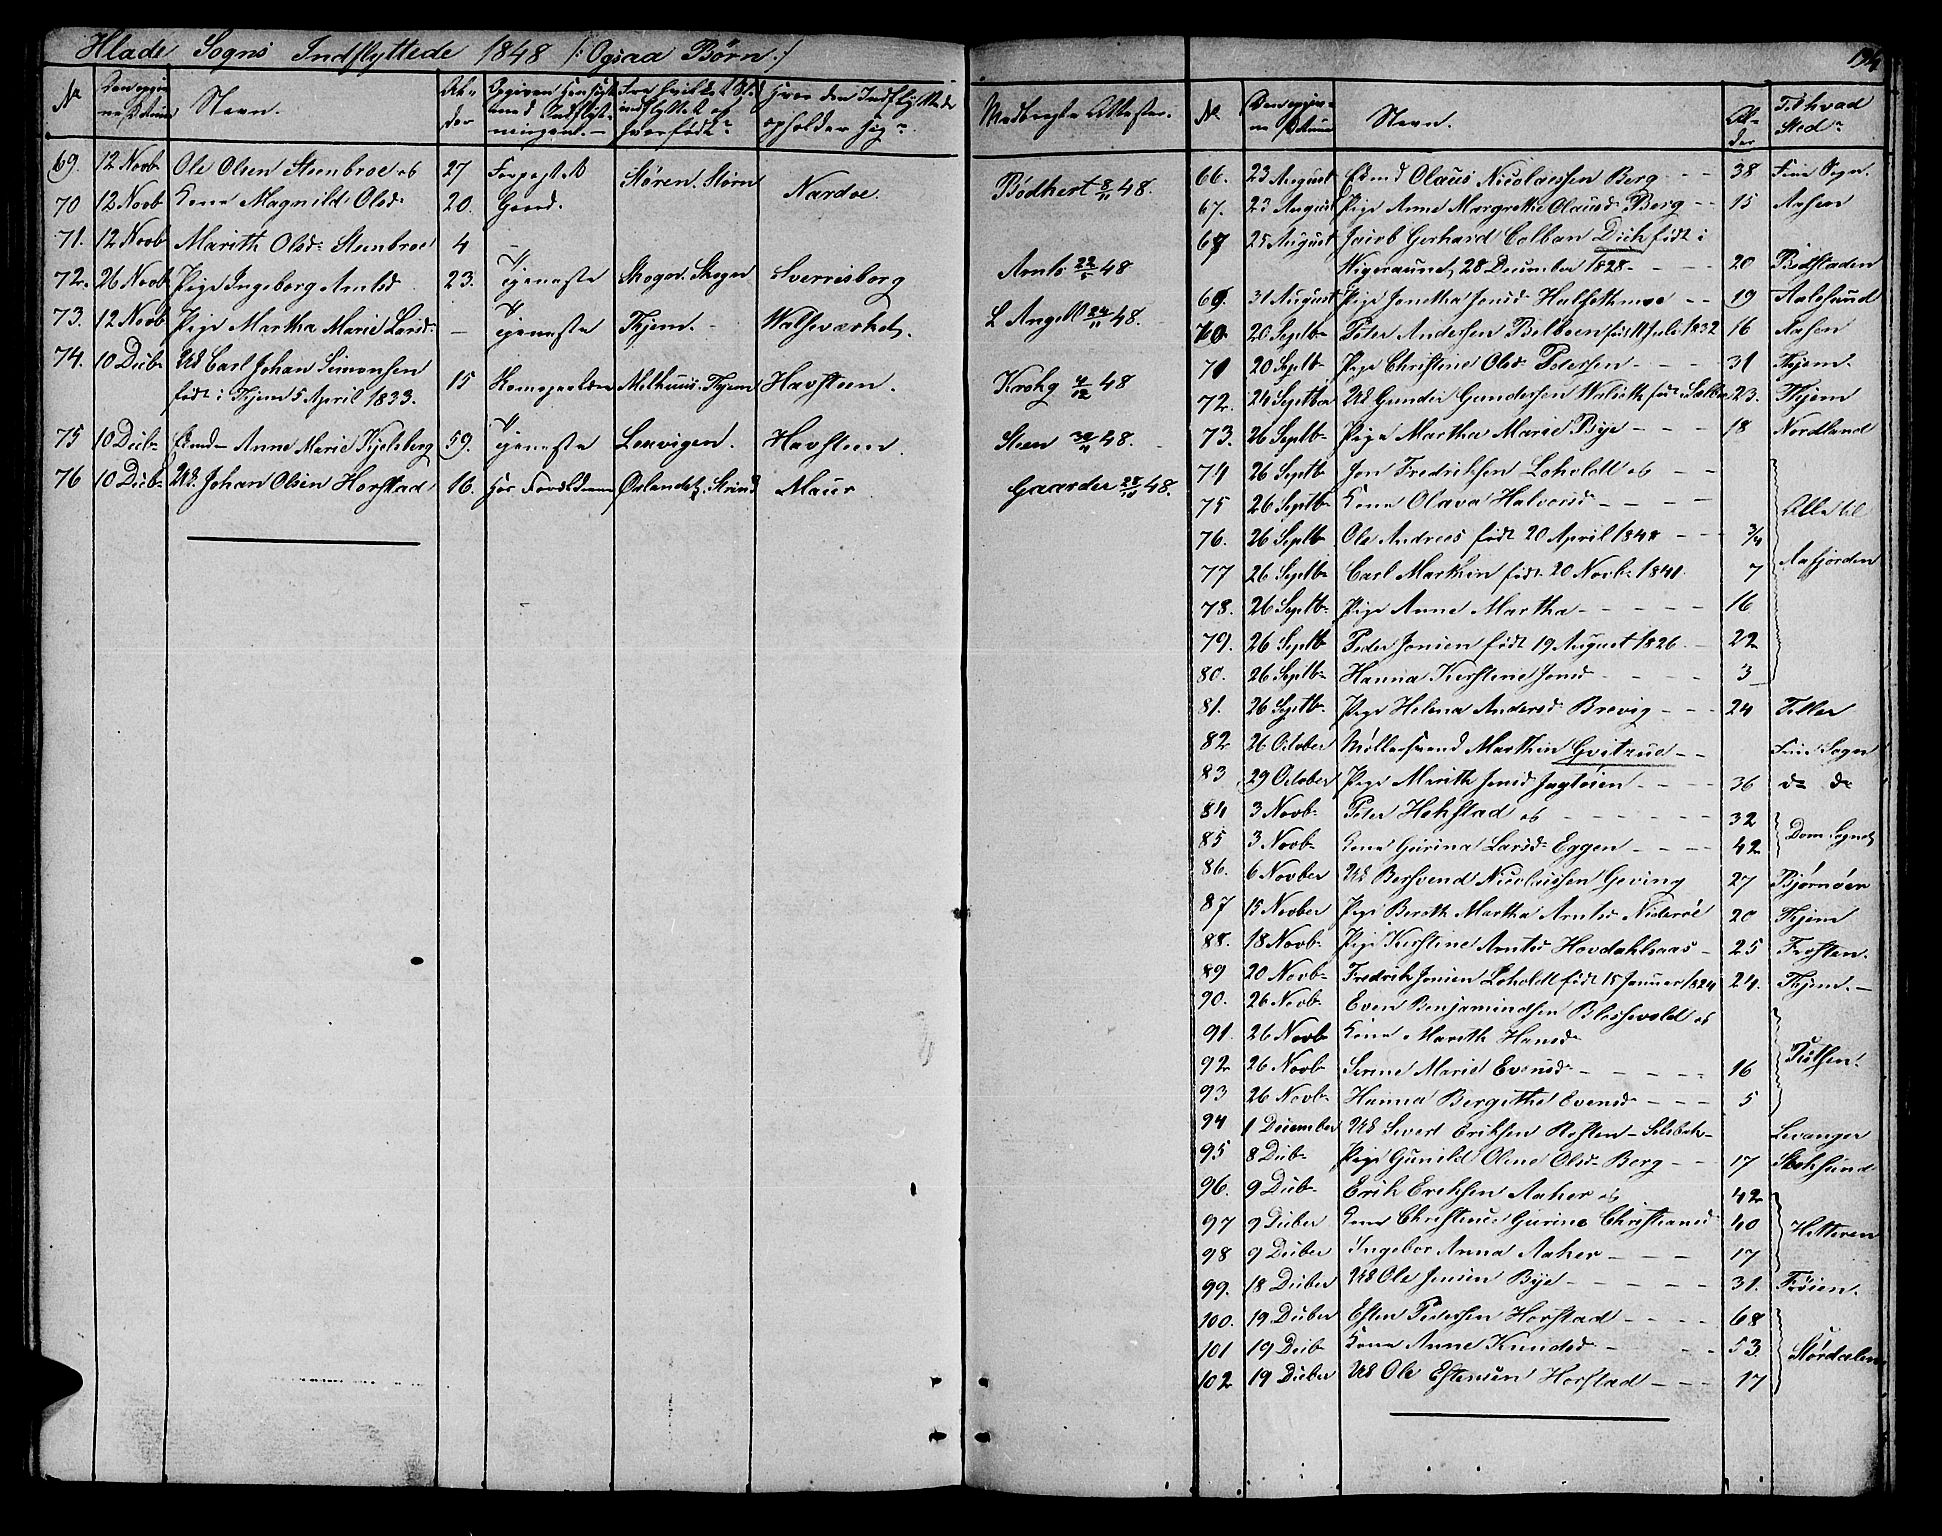 Hlade Sogns Indflyttede 1848 /: Ogsaa Børn :/
194
No Navn. Al-der Opgiven Hensigt med Indflytningen. Fra hvilket St: indflyttet og hvor født? Hvor den Indflyttede opholder sig? Medbragte Attester.
69. 12 Novb Ole Olsen Steenbroe og 27 Forpagtet Støren. Støren Nardoe. Bødhert 8/11 48.
70 12 Novb Kone Magnild Olsd. 20. Gaard.
71. 12 Novb Marith Olsd. Steenbroe 4
72. 26 Novb Pige Ingeborg Arntsd 23. Tjeneste Skogn. Skogn Sverrisborg Arnts 22/ 48
73. 12 Novb Pige Martha Marie Larsd. - Tjeneste Thjem. - Walseværket. L Angell 24/11 48.
74. 10 Decb. UK Carl Johan Simonsen
født i Thjem 5 April 1833. 15 Melhuus. Thjem Havsteen. Krohg 4/12 48
75 10 Decb. Anne Marie Kjelsberg 59. Tjeneste Lexvigen. Havsteen. Steen 30/11 48.
76 10 Decb. UK Johan Olsen Horstad 16. hos Forældrene Ørlandet. Strind Maur Gaarder 28/10 48.
No Navn. Al-der Til hvad Sted?
66. 23 August Olaus Nicolaissen Berg - - 38 Frue Sogn.
67. 23 August Pige Anne Margrethe Olausd. Berg - - 15 Aasen
68 25 August Jacob Gerhard Colban Dick født i
28 December 1828 - - - 20 Bodstaden
69. 31 August Pige Jonetha Jonsd. Halsethmoe - - 19 Aalesund
70 20 Septb. Peter Andersen 1832 16 Aasen
71 20 Septb. Pige Christine Olsd. Petersen - 31 Thjem.
72. 24 Septber UK Gunder Gundersen født i Sælbo 23. Thjem
73. 26 Septb. Pige Martha Marie Bye - - - 18 Nordland
74 26 Septb. Jon Fredriksen Loholdt og - - -
75 26 Septb. Kone Olava Halvorsd - - - Alle til
76. 26 Septb. Ole Andreas født 20 April 1848 - - 3/4 Aafjorden
77 26 Septb. Carl Marthin født 20 Novb. 1841. 7
78. 26 Septb. Pige Anne Martha - - - - - 16
79. 26 Septb. Peder Jonsen født 19 August 1826. - 22
80. 26 Septb. Hanna Kirstine Jonsd - - - - 3
81. 26 Septb. Pige Helena Andersd. Brevig - - - 24 Tiller
82 26 October Møllersvend Marthin - - Frue Sogn
83 29 October Pige Marith Jonsd - - - - 36 do do
84 3 Novb. Peter Hokstad og - - - - - 32
85 3 Novb. Kone Gurina Larsd. Eggen - - - - 42 Dom Sognet
86. 6 Novber UK Bersvend Nicolaissen Geving 27 Bjørnøer
87 15 Novber Pige Bereth Martha Arntsd. 20 Thjem
88. 18 Novb. Pige Kirstine Arntsd. Hovdahlsaas - 25 Frosten.
89 20 Novb. Fredrik Jonsen Loholdt født 18 Januar 1824 24. Thjem. -
90. 26 Novb. Even Benjaminsen og
91. 26 Novb Kone Mareth Hansd. Tutsen.
92 26 Novb Serine Marie Evensd. - - - - - 16
93 26 Novb. Hanna Bergithe Evensd. - - - 5
94 1 December UK Sivert Eriksen Levanger
95 8 Decb. Pige Gunild Oline Olsd. Berg - - 17 Stoksund
96. 9 Decb. Erik Eriksen Aaker og 42
97 9 Decber Kone Christense Gurine Christiansd 40 Hitteren
98 9 Decber Ingebor Anna Aaker - - - - 17
99. 18 Decber UK Ole Jensen Bye - - - - - 31. Frøien.
100. 19 Decber Esten Pedersen Horstad - - - - 68
101 19 Decb. Kone Anne Knudsd. - - - 53 Størdalen
102 19 Decber UK Ole Estensen Horstad - - - 17